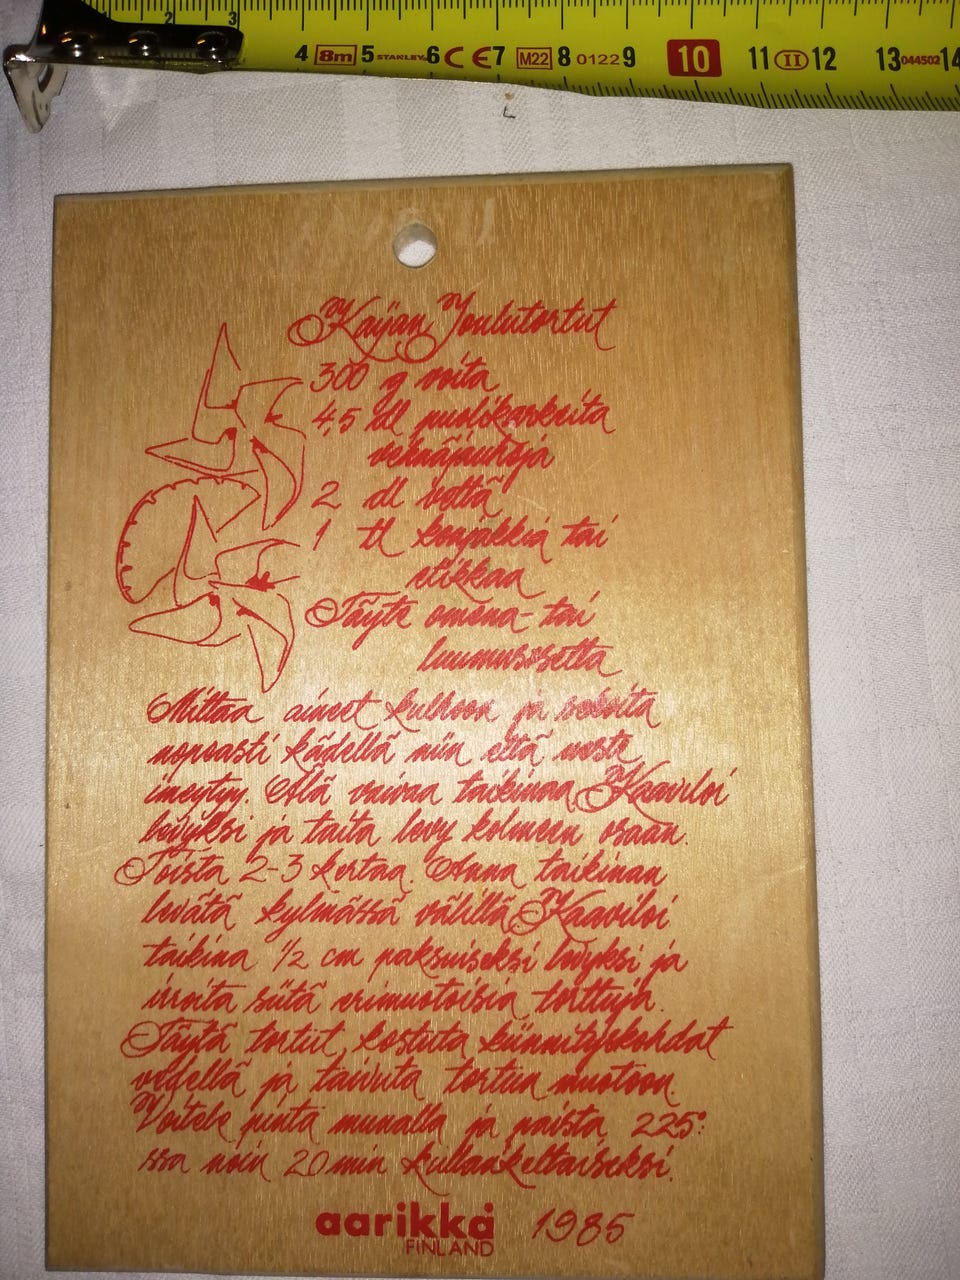 1 2 3 4 8m 5 STANLEY 6 CE 7 M22 8 0122 9 10 11 II 12 13 044502 14
Kaijan Joulutortut
300 g voita
4,5 dl puolikarkeita
vehnäjauhoja
2 dl vettä
1 tl konjakkia tai
etikkaa
Täyte omena- tai
luumusosetta
Mittaa aineet kulhoon ja sekoita
nopeasti kädellä niin että neste
imeytyy. Älä vaivaa taikinaa. Kaaviloi
levyksi ja taita levy kolmeen osaan.
Toista 2-3 kertaa. Anna taikinan
levätä kylmässä välillä. Kaaviloi
taikina 1/2 cm paksuiseksi levyksi ja
irroita siitä erimuotoisia torttuja.
Täytä tortut, kostuta kiinnityskohdat
vedellä ja taivuta tortun muotoon.
Voitele pinta munalla ja paista 225°:
ssa noin 20 min kullankeltaiseksi.
aarikka 1985
FINLAND